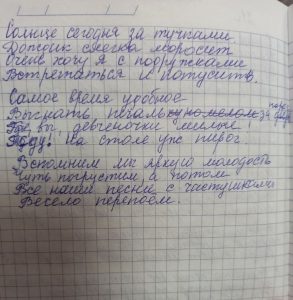 Солнце сегодня за тучками
Дождик слегка моросит
Очень хочу я с подружками
Встретиться и потусить.
Самое время удобное
Выгнать печаль за
Где вы, девчоночки милые!
Жду! На столе уж пирог.
Вспомним мы яркую молодость
Чуть погрустим, а потом
Все наши песни с частушками
Весело перепоём.